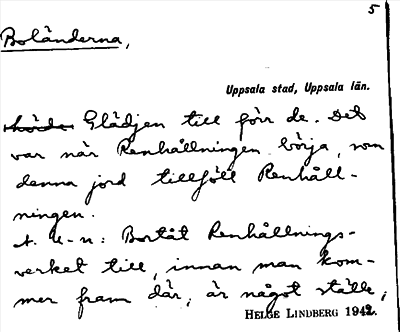 5
Boländerna,
Uppsala stad, Uppsala län.
Glädjen till förr de. Det
var när Renhållningen börja, som
denna jord tillföll Renhåll-
ningen.
A. U-n: Bortåt Renhållnings-
verket till, innan man kom-
mer fram där, är något ställe,
HELGE LINDBERG 1942.